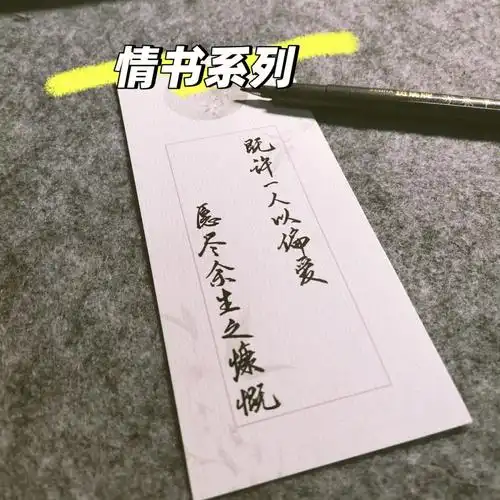 情书系列
既许一人以偏爱
愿尽余生之慷慨